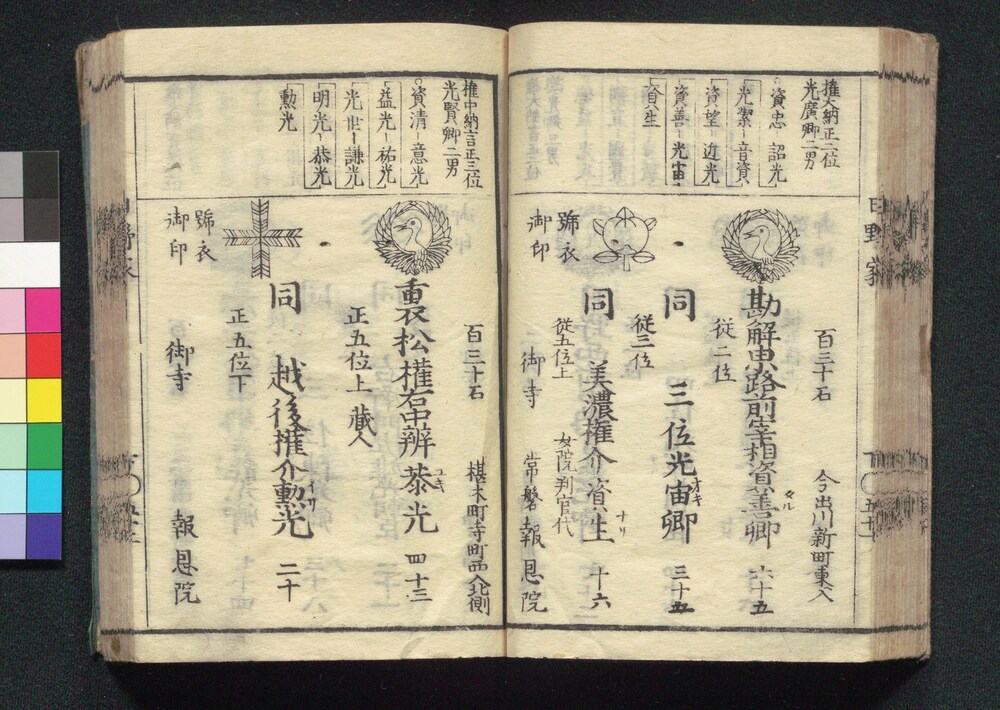 権大納正二位
光廣卿二男
資忠 詔光
光潔 音資
資望 近光
資善 光宙
資生
百三十石 今出川新町東入
勘解由路前宰相資善卿 六十五
従二位
同 三位光宙卿 三十五
オキ
従三位
同 美濃権介資生 十六
ナリ
従五位上 女院判官代
號衣 御寺 常磐報恩院
御印
権中納言正三位
光賢卿二男
資清 意光
益光 祐光
光世 謙光
明光 恭光
勲光
百三十石 椹木町寺町西入北側
裏松権右中辨恭光 四十三
ユキ
正五位上 蔵人
同 越後権介勲光 二十
イサ
正五位下
號衣
御印 御寺 報恩院
日野家